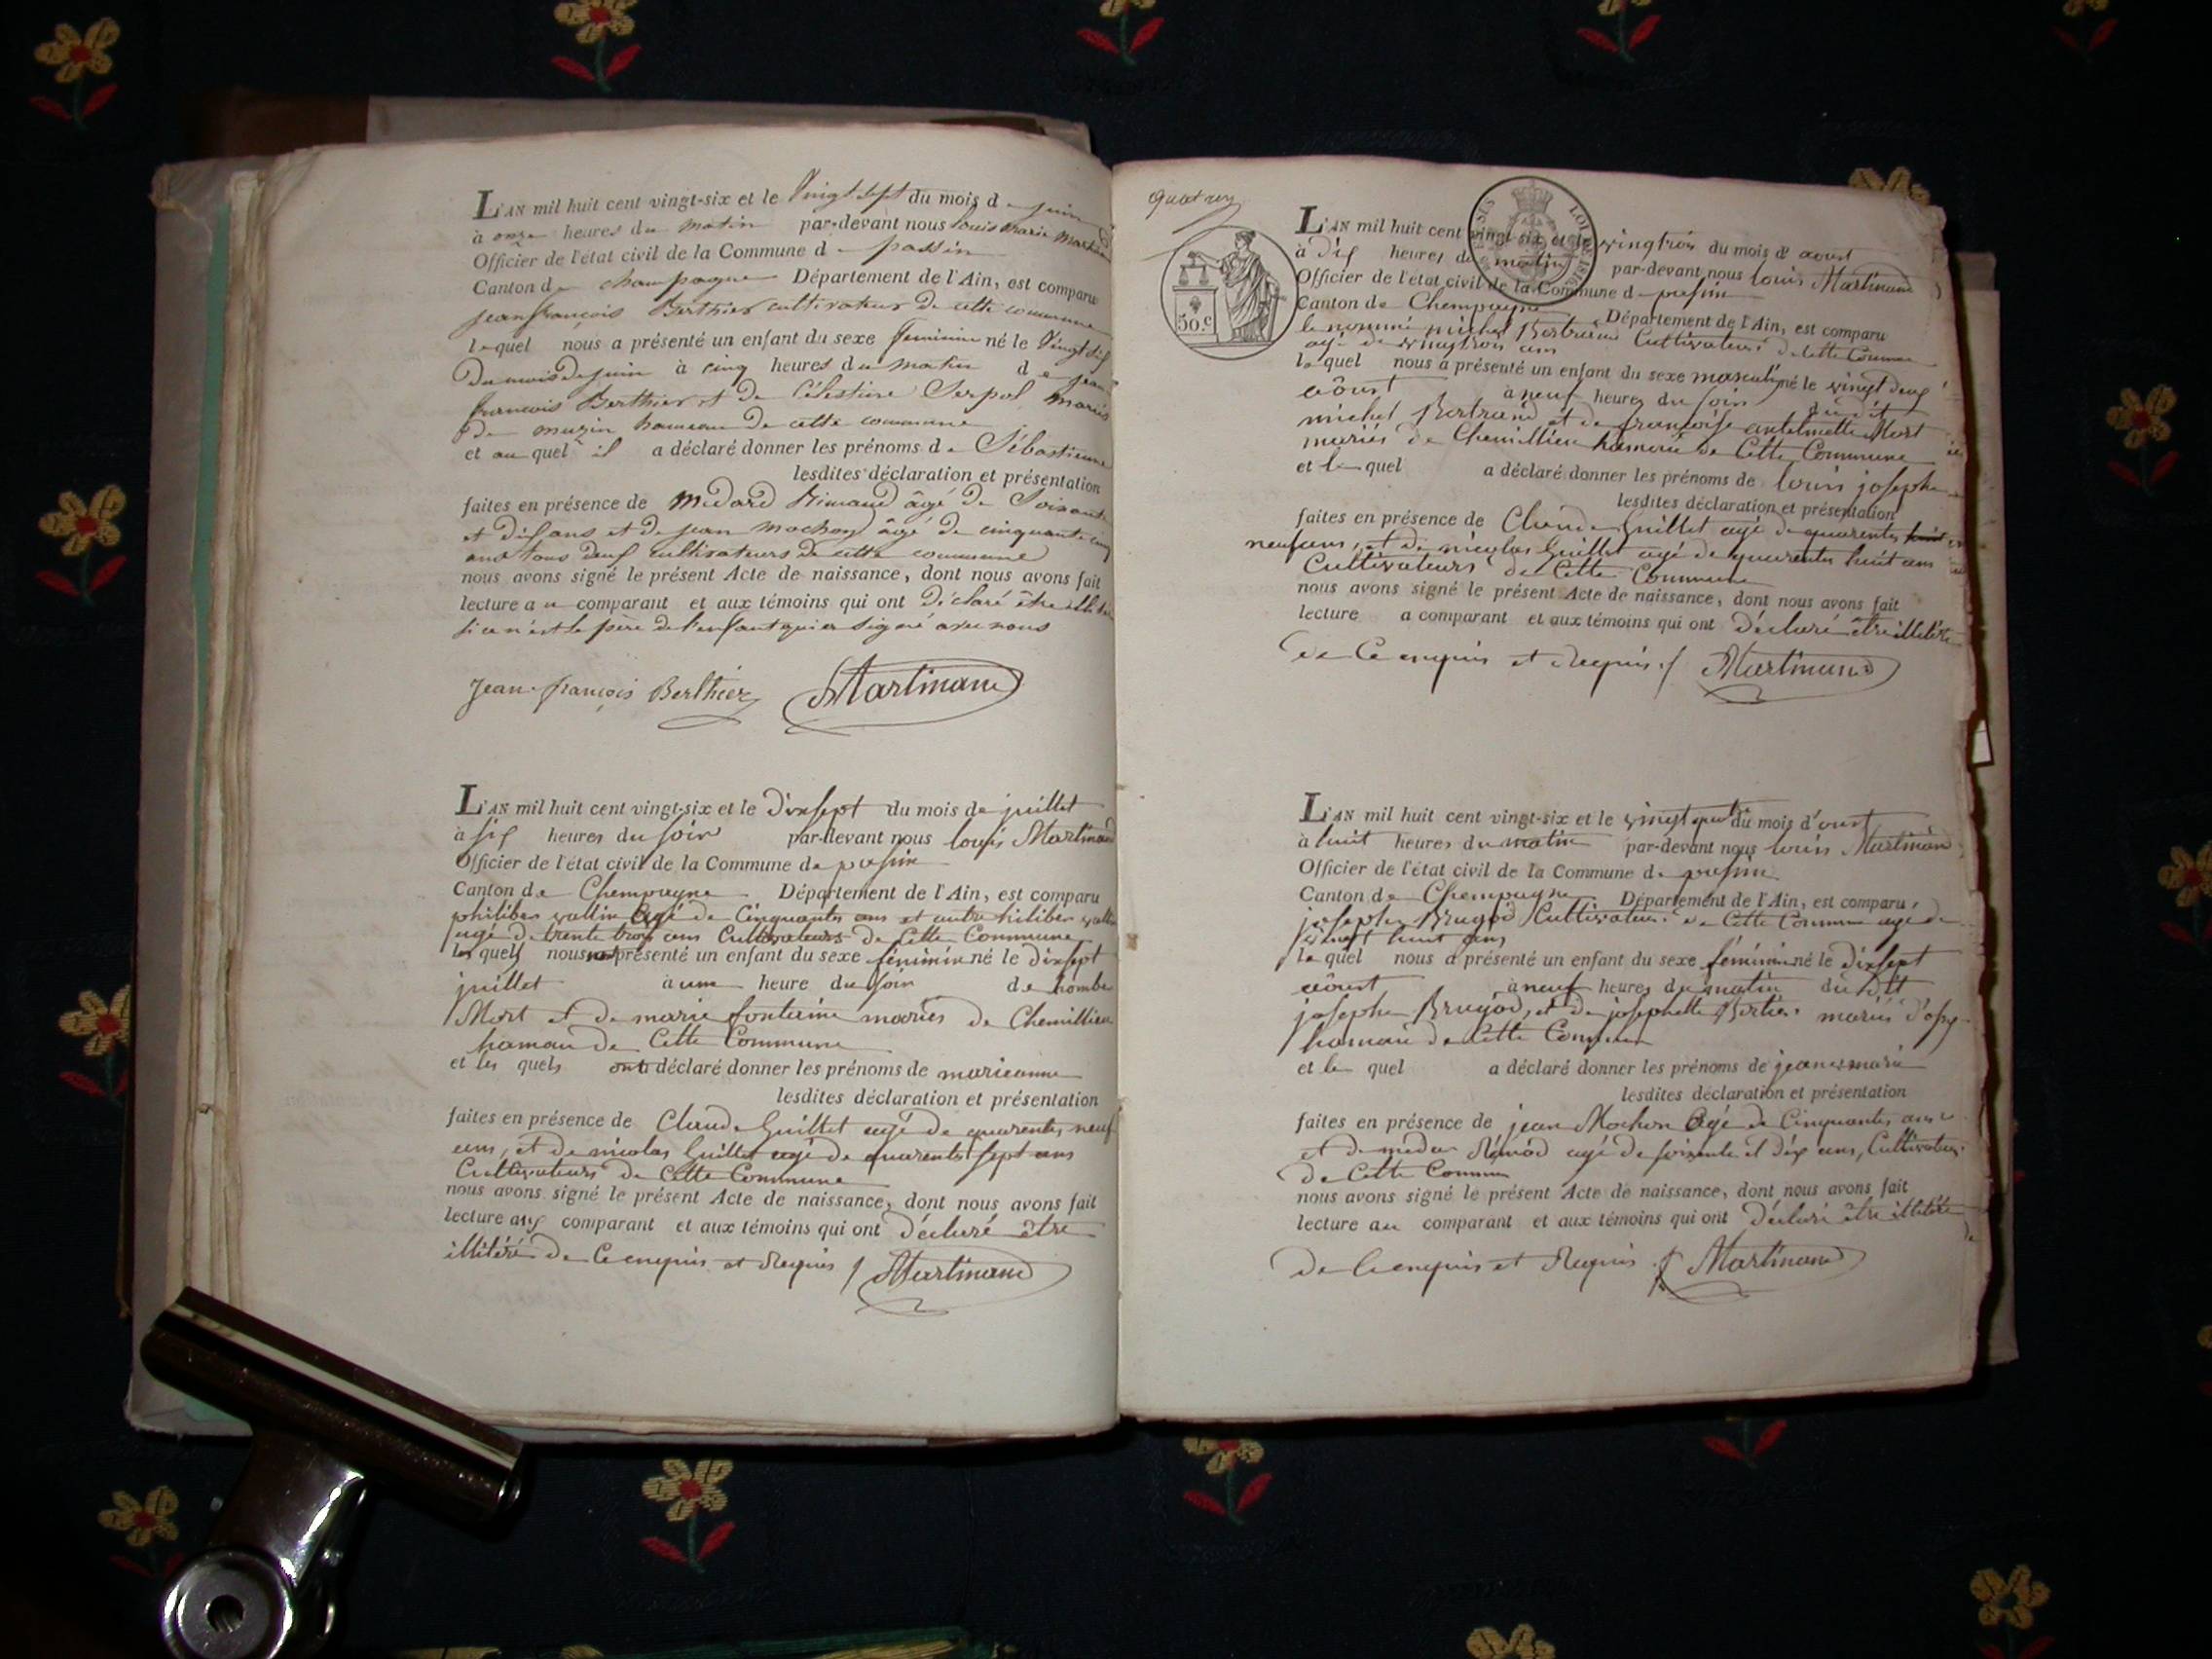 L'AN mil huit cent vingt-six et le Vingt sept du mois de juin
à onze heures du matin par-devant nous Louis Marie Martinand
Officier de l'état civil de la Commune de passin
Canton de champagne Département de l'Ain, est comparu
jean françois Berthier cultivateur de cette commune
lequel nous a présenté un enfant du sexe feminin né le Vingt six
du mois de juin à cinq heures du matin de jean
françois Berthier et de Célestine Serpol mariés
de muzin hameau de cette commune
et au quel il a déclaré donner les prénoms de Sébastienne
lesdites déclaration et présentation
faites en présence de Médard Rimaud âgé de Soixante
et dix ans et de jean mochon âgé de cinquante cinq
ans tous deux cultivateurs de cette commune
nous avons signé le présent Acte de naissance, dont nous avons fait
lecture au comparant et aux témoins qui ont Déclaré être
si ce n'est le père de l'enfant qui a signé avec nous
Jean-françois Berthier Martinand
L'AN mil huit cent vingt-six et le dixsept du mois de juillet
à six heures du soir par-devant nous louis Martinand
Officier de l'état civil de la Commune de passin
Canton de Chempagne Département de l'Ain, est comparu
philiber vallin agé de Cinquantes ans et autre philiber vallin
agé de trente trois ans Cultivateurs de Cette Commune
les quels nous présenté un enfant du sexe féminin né le dixsept
juillet à une heure du soir de
Mort et de marie fontaine mariés de Chemillieu
hamau de Cette Commune
et les quels ont déclaré donner les prénoms de marieanne
lesdites déclaration et présentation
faites en présence de Claude Guillet agé de quarentes neuf
ans, et de nicolas Guillet agé de quarentes sept ans
Cultivateurs de Cette Commune
nous avons signé le présent Acte de naissance, dont nous avons fait
lecture aux comparant et aux témoins qui ont déclaré être
illitéré de Ce enquis et Requis / Martinand
50.c
LOI DE 1816
L'AN mil huit cent vingt-six et le vingtrois du mois d'aoust
à dix heures du matin par-devant nous louis Martinand
Officier de l'état civil de la Commune de passin
Canton de Chempagne Département de l'Ain, est comparu
le nommé michel Bertrand Cultivateur de Cette Commune
agé de vingtrois ans
le quel nous a présenté un enfant du sexe masculin né le vingt deux
aôust à neuf heures du soir du dit
michel Bertrand et de françoise antelmette Mort
mariés de Chemillieu hameau de Cette Commune
et le quel a déclaré donner les prénoms de louis josephe
lesdites déclaration et présentation
faites en présence de Claude Guillet agé de quarentes huit
neuf ans, et de nicolas Guillet agé de quarentes huit ans
Cultivateurs de Cette Commune
nous avons signé le présent Acte de naissance, dont nous avons fait
lecture a comparant et aux témoins qui ont déclaré être illitéré
de Ce enquis et Requis / Martinand
L'AN mil huit cent vingt-six et le vingt quatre du mois d'oust
à huit heures du matin par-devant nous louis Martinand
Officier de l'état civil de la Commune de passin
Canton de Chempagne Département de l'Ain, est comparu
josephe Brugod Cultivateur de Cette Commune agé de
vingt huit ans
le quel nous a présenté un enfant du sexe féminin né le dixsept
aôust à neuf heures du matin du dit
josephe Brugod, et de josephette Bertier mariés
hamau de Cette Commune
et le quel a déclaré donner les prénoms de jeane marie
lesdites déclaration et présentation
faites en présence de jean Mochon agé de Cinquantes ans
et de medar Rimod agé de soixante et dix ans, Cultivateur
de Cette Commune
nous avons signé le présent Acte de naissance, dont nous avons fait
lecture au comparant et aux témoins qui ont déclaré être illitéré
de Ce enquis et Requis / Martinand